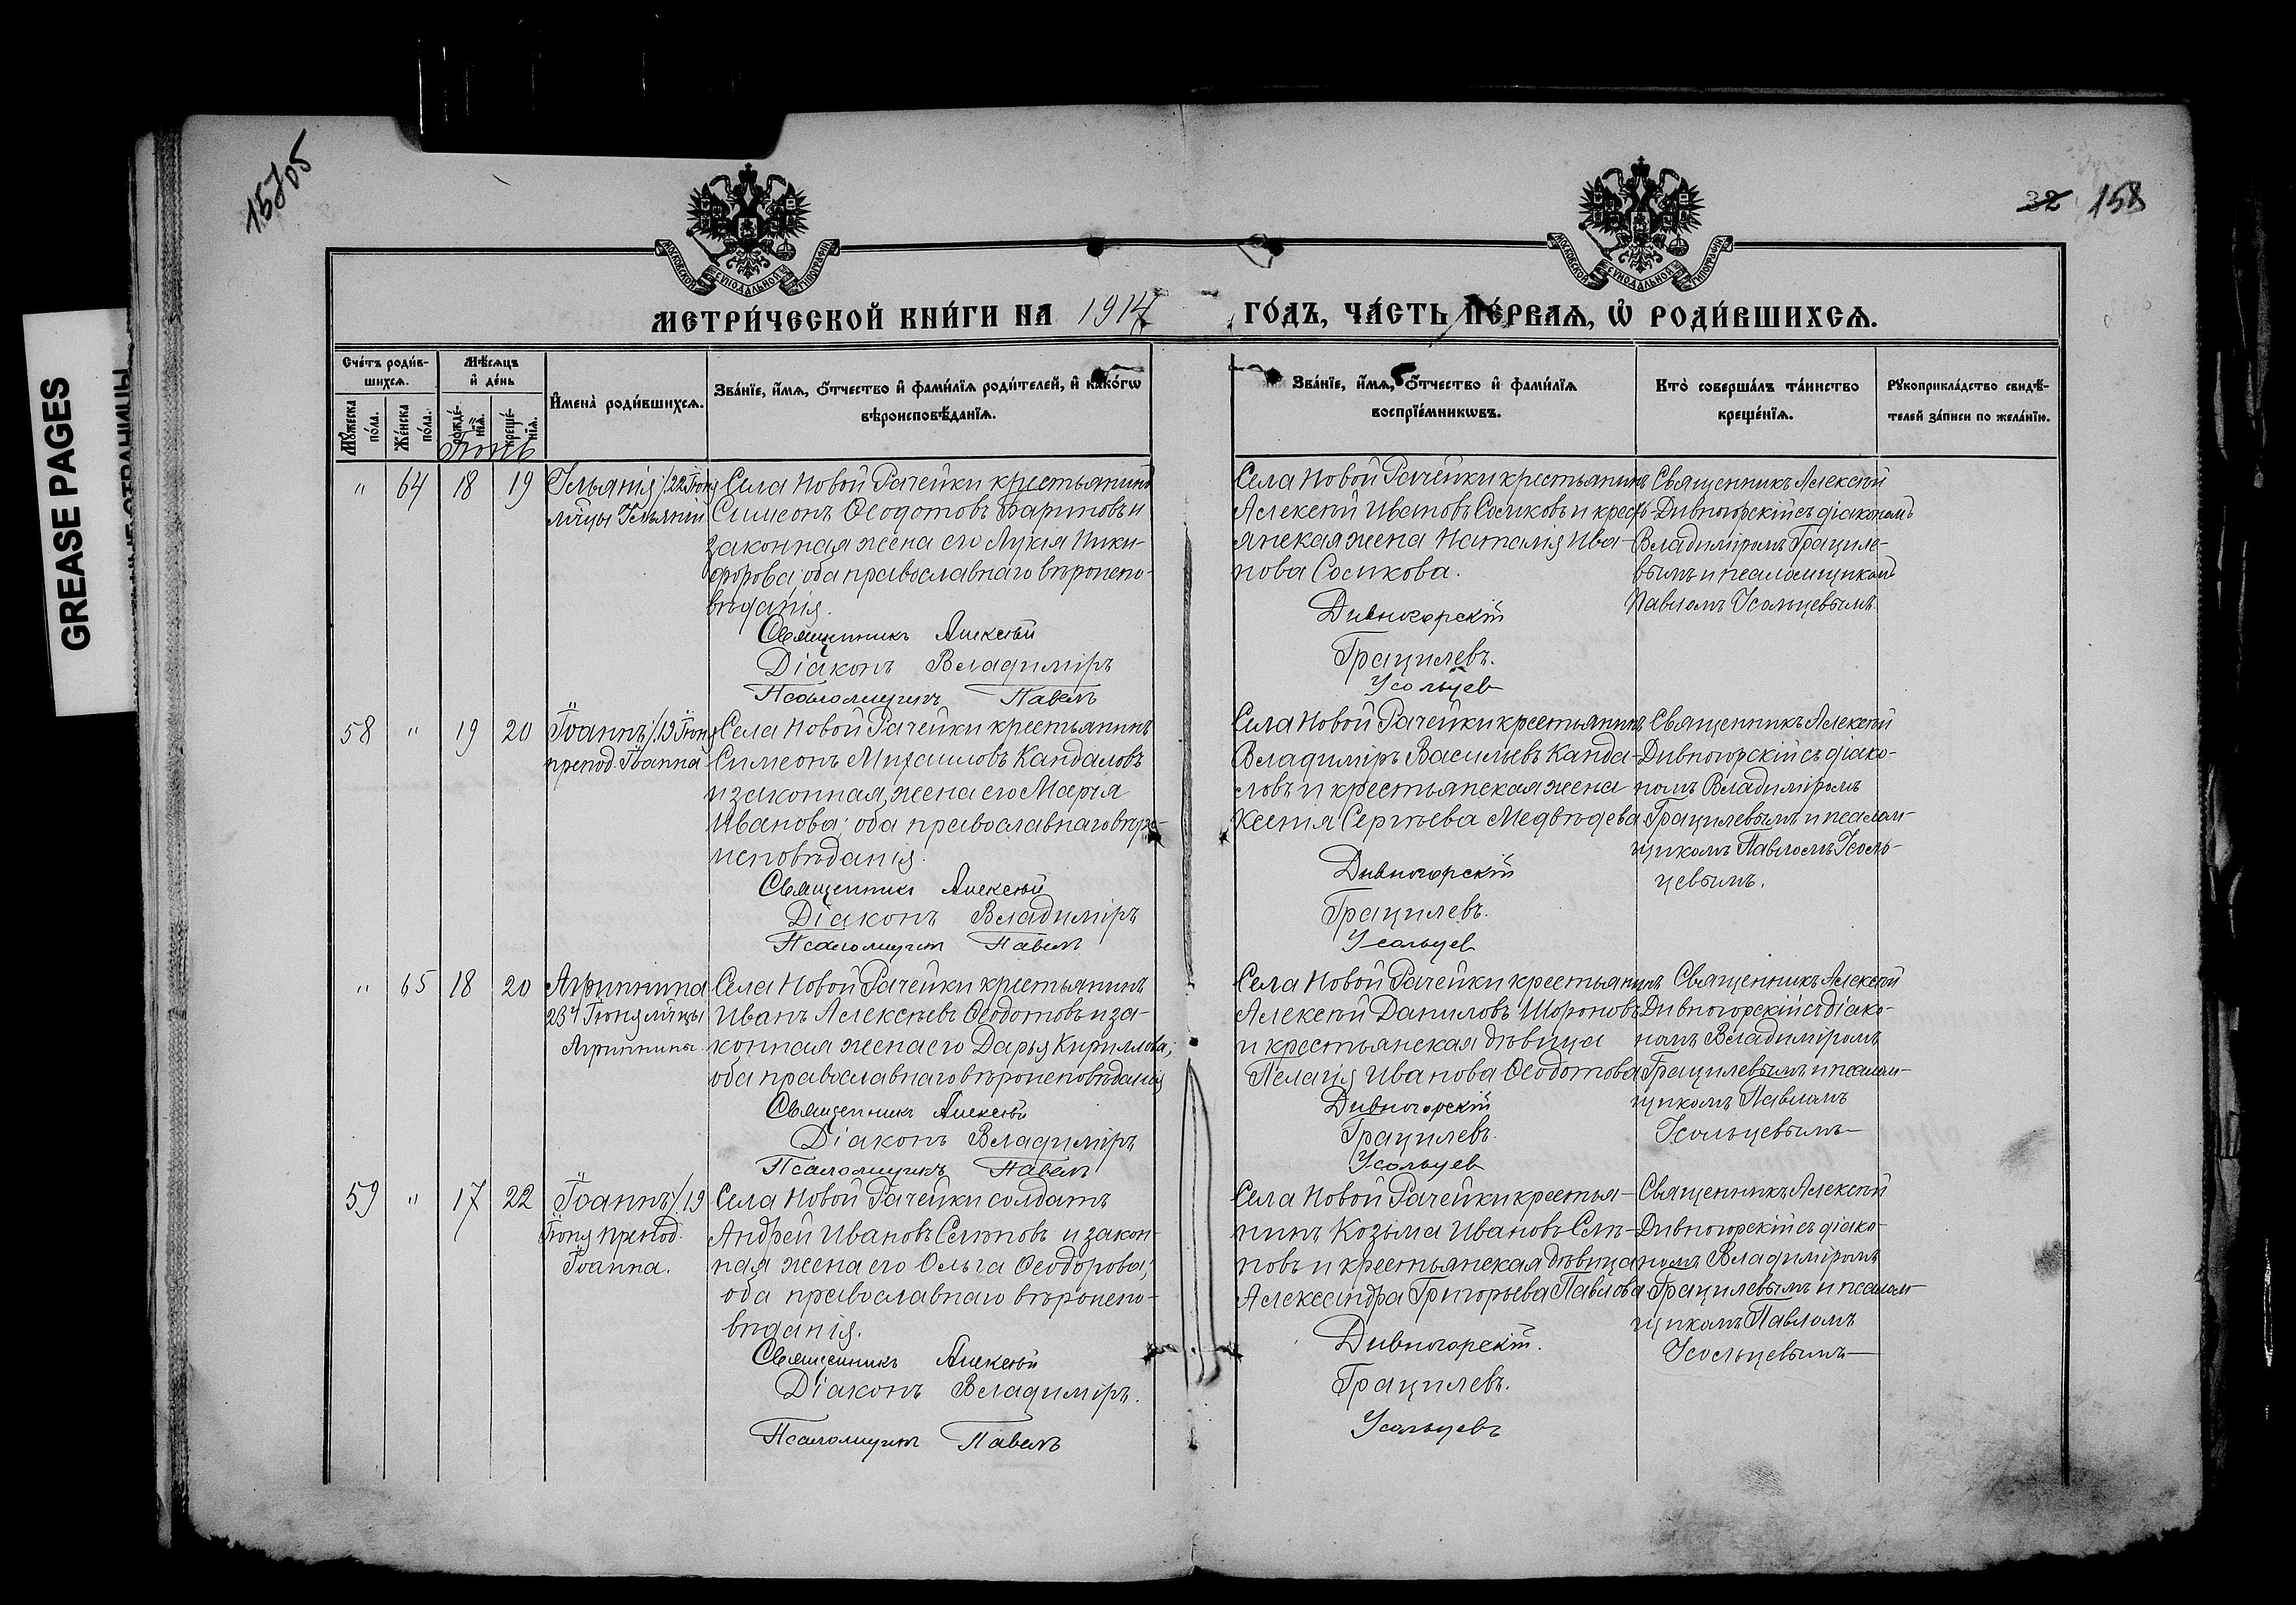 GREASE PAGES
15705
32 158
МОСКОВСКОЙ СѴНОДАЛЬНОЙ ТИПОГРАФІИ
МОСКОВСКОЙ СѴНОДАЛЬНОЙ ТИПОГРАФІИ
МЕТРИ́ЧЕСКОЙ КНИ́ГИ НА 1914 ГО́ДЪ, ЧА́СТЬ ПЕ́РВАѦ, Ѡ҆ РОДИ́ВШИХСѦ.
Сче́тъ роди́в-
шихсѧ.
Мѣ́сѧцъ
и҆ де́нь
Мꙋ́жеска по́ла.
Же́нска по́ла.
рожде́-нїѧ.
креще́-нїѧ.
И҆мена̀ роди́вшихсѧ.
Зва́нїе, и҆́мѧ, ѻ҆́тчество и҆ фами́лїѧ роди́телей, и҆ како́гѡ
вѣроисповѣ́данїѧ.
Зва́нїе, и҆́мѧ, ѻ҆́тчество и҆ фами́лїѧ
воспрїе́мникѡвъ.
Кто̀ соверша́лъ та́инство
креще́нїѧ.
Рꙋкоприкла́дство свидѣ́-
телей за́писи по жела́нїю.
Іюнь
" 64 18 19
Іуліанія/22 Іюня
м̃цы Іуліаніи
Села Новой Рачейки крестьянинъ
Симеонъ Ѳеодотовъ Бариновъ и
законная жена его Лукія Ники-
форова; оба православнаго вѣроиспо-
вѣданія.
Священникъ Алексѣй
Діаконъ Владиміръ
Псаломщикъ Павелъ
Села Новой Рачейки крестьянинъ
Алексѣй Ивановъ Сосиковъ и кресть-
янская жена Наталія Ива-
нова Сосикова.
Дивногорскій
Грацилевъ.
Усольцев
Священникъ Алексѣй
Дивногорскій съ діакономъ
Владиміромъ Грациле-
вымъ и псаломщикомъ
Павломъ Усольцевымъ.
58 " 19 20
Іоаннъ/.19 Іюня
препод. Іоанна
Села Новой Рачейки крестьянинъ
Симеонъ Михаиловъ Кандаловъ
и законная жена его Марія
Иванова; оба православнаго вѣро-
исповѣданія.
Священникъ Алексѣй
Діаконъ Владиміръ
Псаломщикъ Павелъ
Села Новой Рачейки крестьянинъ
Владиміръ Васильевъ Канда-
ловъ и крестьянская жена
Ксенія Сергѣева Медвѣдева
Дивногорскій
Грацилевъ.
Усольцев
Священникъ Алексѣй
Дивногорскій съ діако-
номъ Владиміромъ
Грацилевымъ и псалом-
щикомъ Павломъ Усоль-
цевымъ.
" 65 18 20
Агриппина
23 Іюня м̃цы
Агриппины.
Села Новой Рачейки крестьянинъ
Иванъ Алексѣевъ Ѳеодотовъ и за-
конная жена его Дарья Кириллова;
оба православнаго вѣроисповѣданія
Священникъ Алексѣй
Діаконъ Владиміръ
Псаломщикъ Павелъ
Села Новой Рачейки крестьянинъ
Алексѣй Даниловъ Шороновъ
и крестьянская дѣвица
Пелагія Иванова Ѳеодотова
Дивногорскій
Грацилевъ.
Усольцев
Священникъ Алексѣй
Дивногорскій съ діако-
номъ Владиміромъ
Грацилевымъ и псалом-
щикомъ Павломъ
Усольцевымъ
59 " 17 22
Іоаннъ/.19
Іюня препод.
Іоанна.
Села Новой Рачейки солдатъ
Андрей Ивановъ Слѣповъ и закон-
ная жена его Ольга Ѳеодорова;
оба православнаго вѣроиспо-
вѣданія.
Священникъ Алексѣй
Діаконъ Владиміръ.
Псаломщикъ Павелъ
Села Новой Рачейки крестья-
нинъ Козьма Ивановъ Слѣ-
повъ и крестьянская дѣвица
Александра Григорьева Павлова
Дивногорскій.
Грацилевъ.
Усольцевъ
Священникъ Алексѣй
Дивногорскій съ діако-
номъ Владиміромъ
Грацилевымъ и псалом-
щикомъ Павломъ
Усольцевымъ